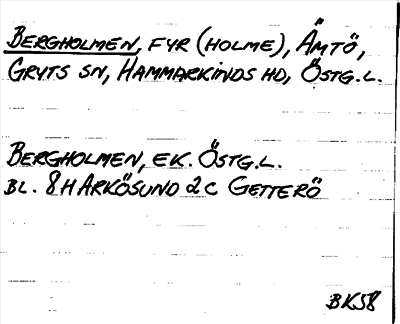 BERGHOLMEN, FYR (HOLME), ÄMTÖ,
GRYTS SN, HAMMARKINDS HD, ÖSTG.L.
BERGHOLMEN, EK. ÖSTG.L.
BL. 8H ARKÖSUND 2C GETTERÖ
BK58